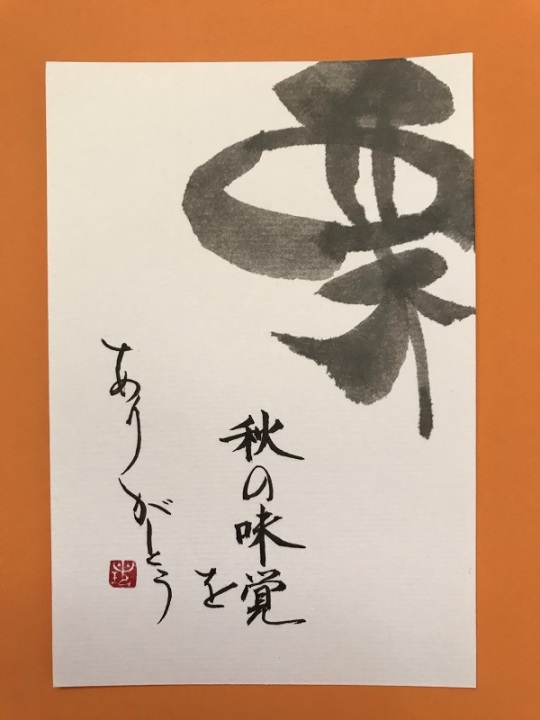 栗
秋の味覚
を
ありがとう